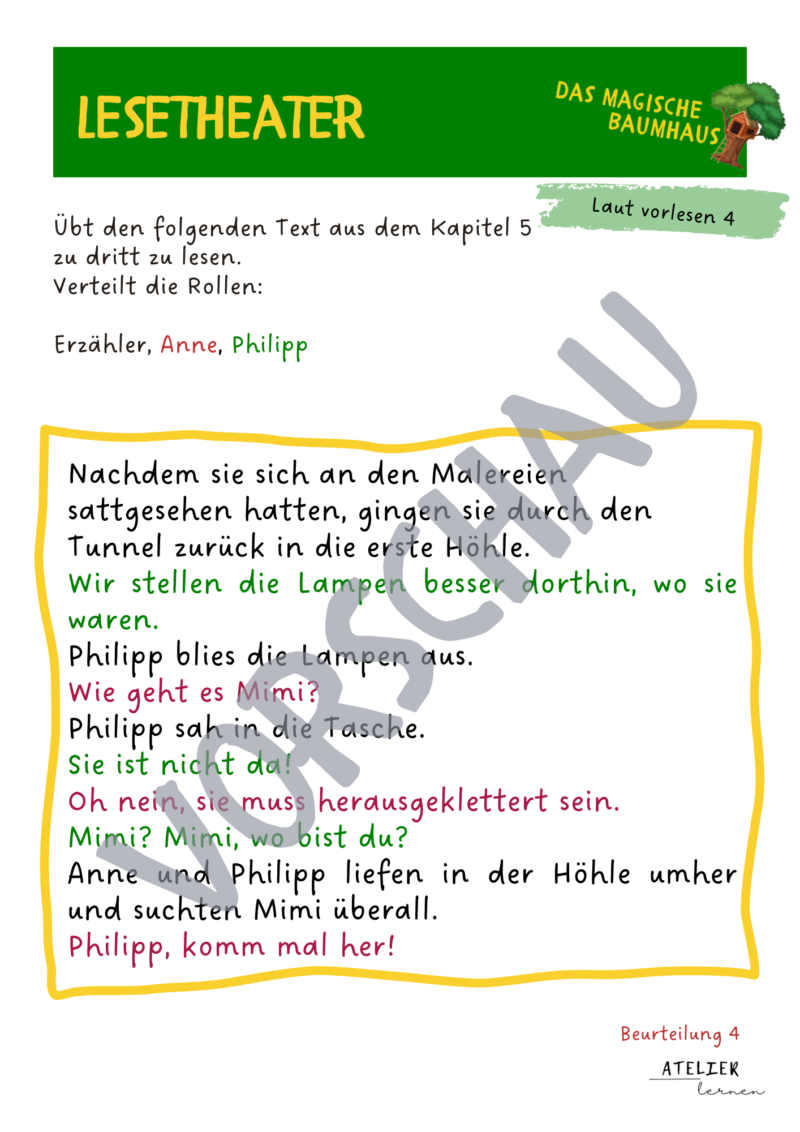 LESETHEATER
DAS MAGISCHE
BAUMHAUS
Laut vorlesen 4
Übt den folgenden Text aus dem Kapitel 5
zu dritt zu lesen.
Verteilt die Rollen:
Erzähler, Anne, Philipp
Nachdem sie sich an den Malereien
sattgesehen hatten, gingen sie durch den
Tunnel zurück in die erste Höhle.
Wir stellen die Lampen besser dorthin, wo sie
waren.
Philipp blies die Lampen aus.
Wie geht es Mimi?
Philipp sah in die Tasche.
Sie ist nicht da!
Oh nein, sie muss herausgeklettert sein.
Mimi? Mimi, wo bist du?
Anne und Philipp liefen in der Höhle umher
und suchten Mimi überall.
Philipp, komm mal her!
VORSCHAU
Beurteilung 4
ATELIER
lernen